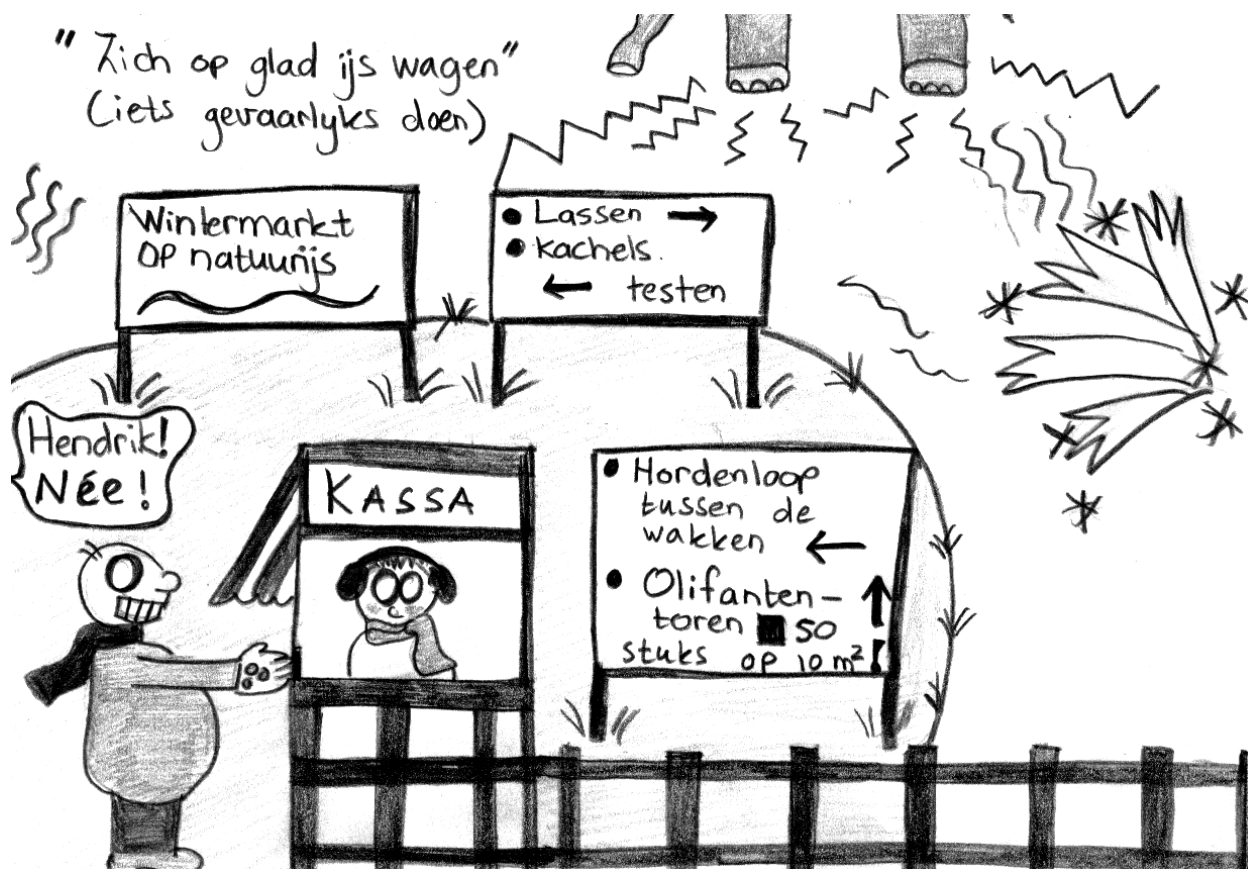 "Zich op glad ijs wagen"
(iets gevaarlyks doen)
Wintermarkt
op natuurijs
• Lassen →
• Kachels.
← testen
Hendrik!
Née!
KASSA
• Hordenloop
tussen de
wakken ←
• Olifanten-
toren 50
stuks op 10 m²!